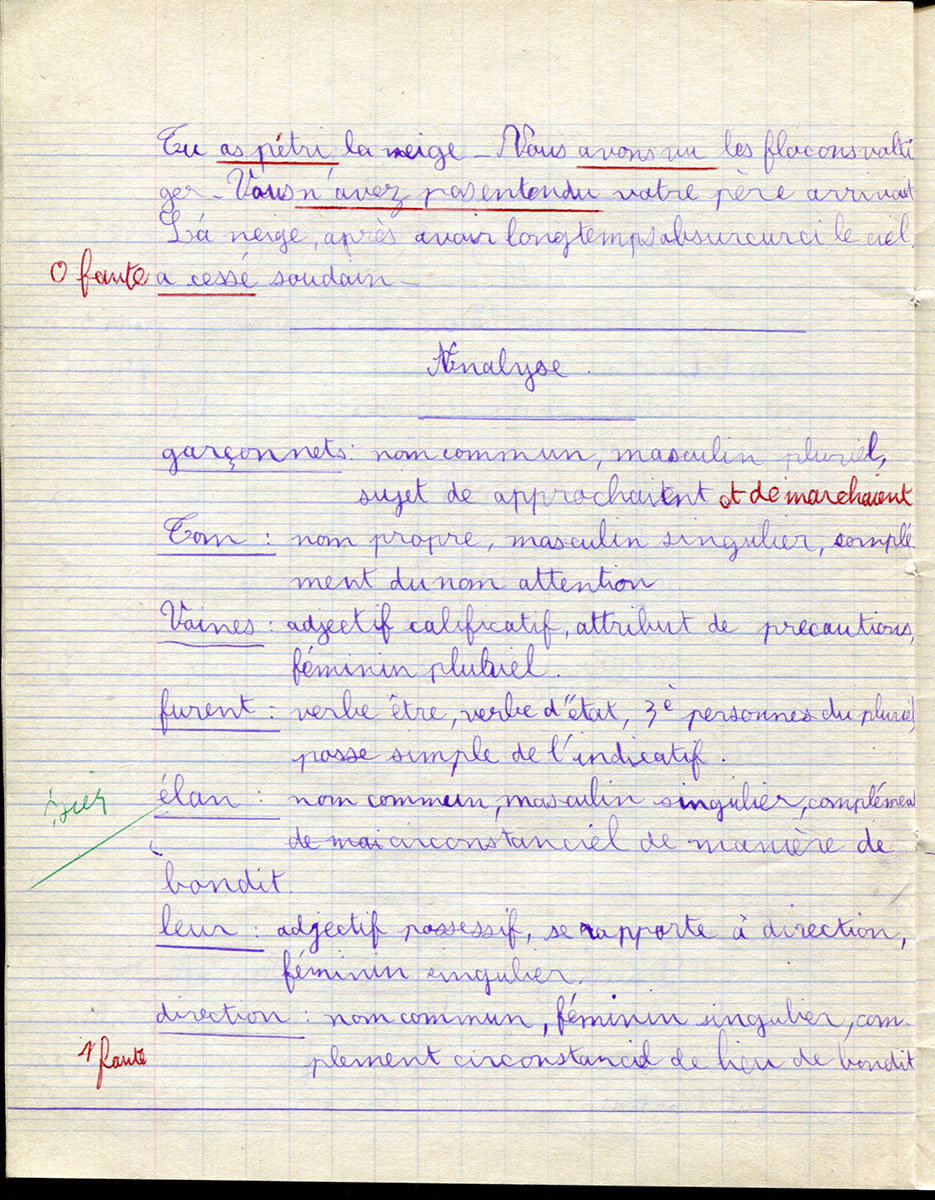 Tu as pétri la neige - Nous avons vu les flocons volti
ger - Vous n'avez pas entendu votre père arrivant
La neige, après avoir longtemps obsurcurci le ciel
0 faute a cessé soudain -
Analyse.
garçonnets : nom commun, masculin pluriel,
sujet de approchaient et démarchaient
Tom : nom propre, masculin singulier, complé
ment du nom attention
Vaines : adjectif calificatif, attribut de précautions,
féminin pluluel.
furent : verbe être, verbe d'état, 3è personnes du pluriel,
passe simple de l'indicatif.
élan : nom commun, masculin singulier, complémen
de mai circonstanciel de manière de
bondit.
leur : adjectif possessif, se rapporte à direction,
féminin singulier.
direction : nom commun, féminin singulier, com-
1 faute plement circonstancid de lieu de bondit